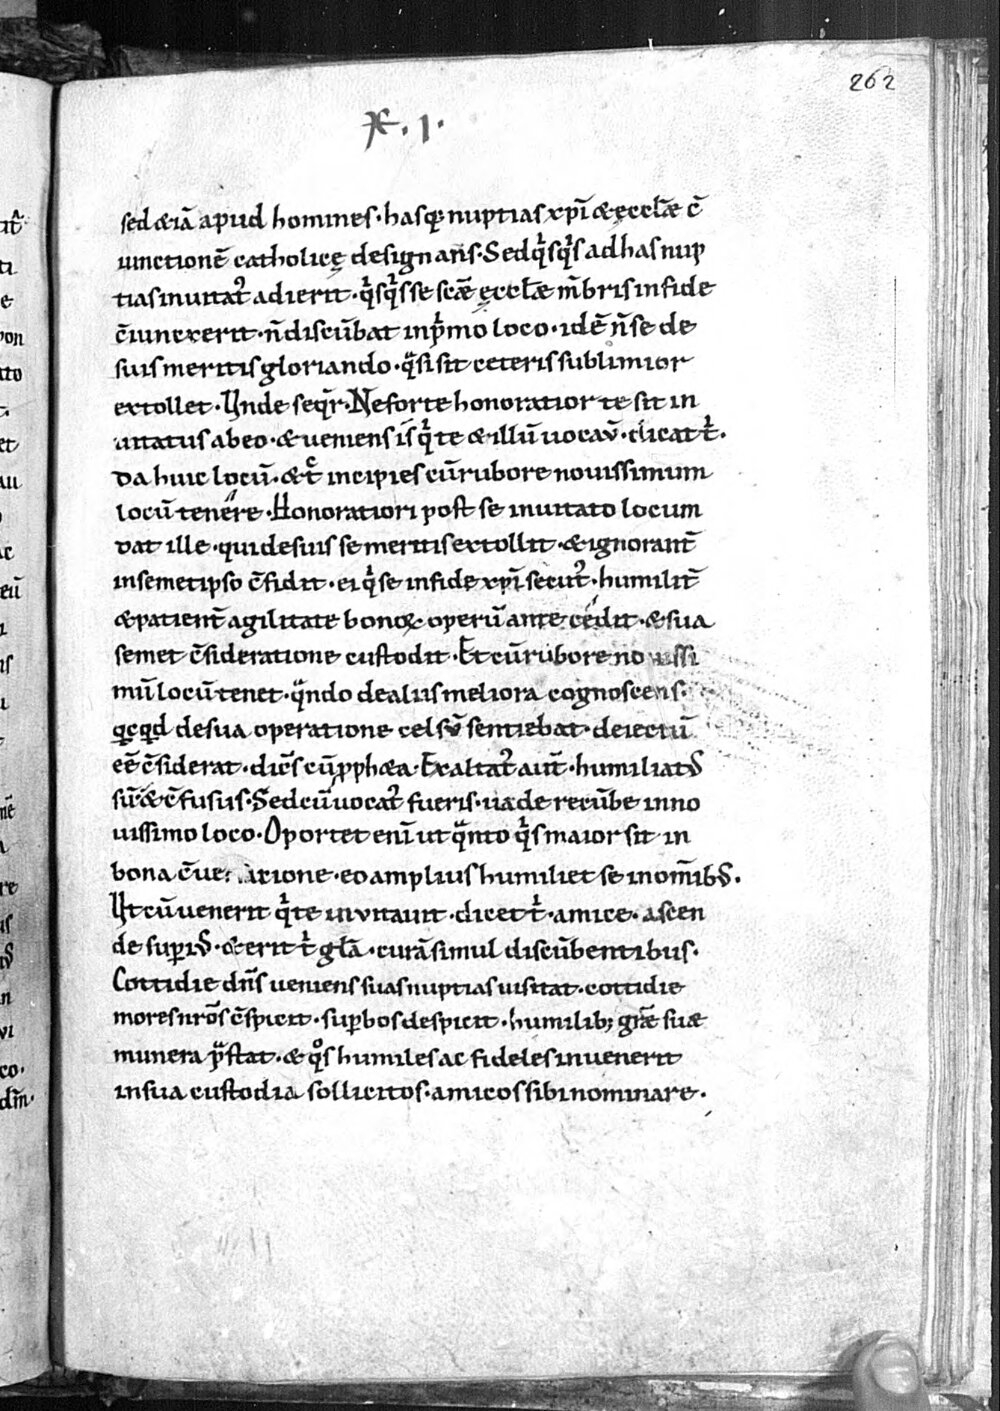 262
.I.
sed &iā apud homines · hasq; nuptias xp̄i & ęccl̄æ c̄
iunctionē catholicę designans · Sed qͥsqͥs ad has nup
tias inuitatᷣ adierit · qͥsqͥs se scǣ ęccl̄æ m̄bris infide
c̄iunxerit · n̄ discūbat in pͥmo loco · idē n̄ se de
suis meritis gloriando · qͣsi sit ceteris sublimior
extollet · Unde seqͬ · Ne forte honoratior te sit in
uitatus ab eo · & ueniens is qͥ te & illū uocaū · dicat tͥ ·
Da huic locū · &t͛ incipies cū rubore nouissimum
locū tenere · Honoratiori post se inuitato locum
dat ille · qui de suis se meritis extollit · & ignorant̄
in semetipso c̄fidit · ei qͥ se in fide xp̄i secutᷣ · humilit̄
& patient̄ agilitate bonoꝝ operū ante cedit · & sua
semet c̄sideratione custodit · Et cū rubore nouissi
mū locū tenet · qͣndo de aliis meliora cognoscens ·
qͥcqͥd de sua operatione celsū sentiebat · deiectū
eē c̄siderat · dic̄s cū ꝓph&a · Exaltatᷣ aut̄ · humiliatꝰ
sū & c̄fusus · Sed cū uocatᷣ fueris · uade recūbe in no
uissimo loco · Oportet eni̅ ut qͣnto qͥs maior sit in
bona c̄ue xione · eo amplius humiliet se in om̄ibꝰ ·
Ut cū uenerit qͥ te inuitauit · dicet tͥ · amice · ascen
de supiꝰ · & erit tͥ glā · curā simul discūbentibus ·
Cottidie dn̄s ueniens suas nuptias uisitat · cottidie
mores nr̄os c̄spicit · supbos despicit · humilib; grǣ suæ
munera pͣstat · & qͦs humiles ac fideles inuenerit
in sua custodia sollicitos · amicos sibi nominare ·